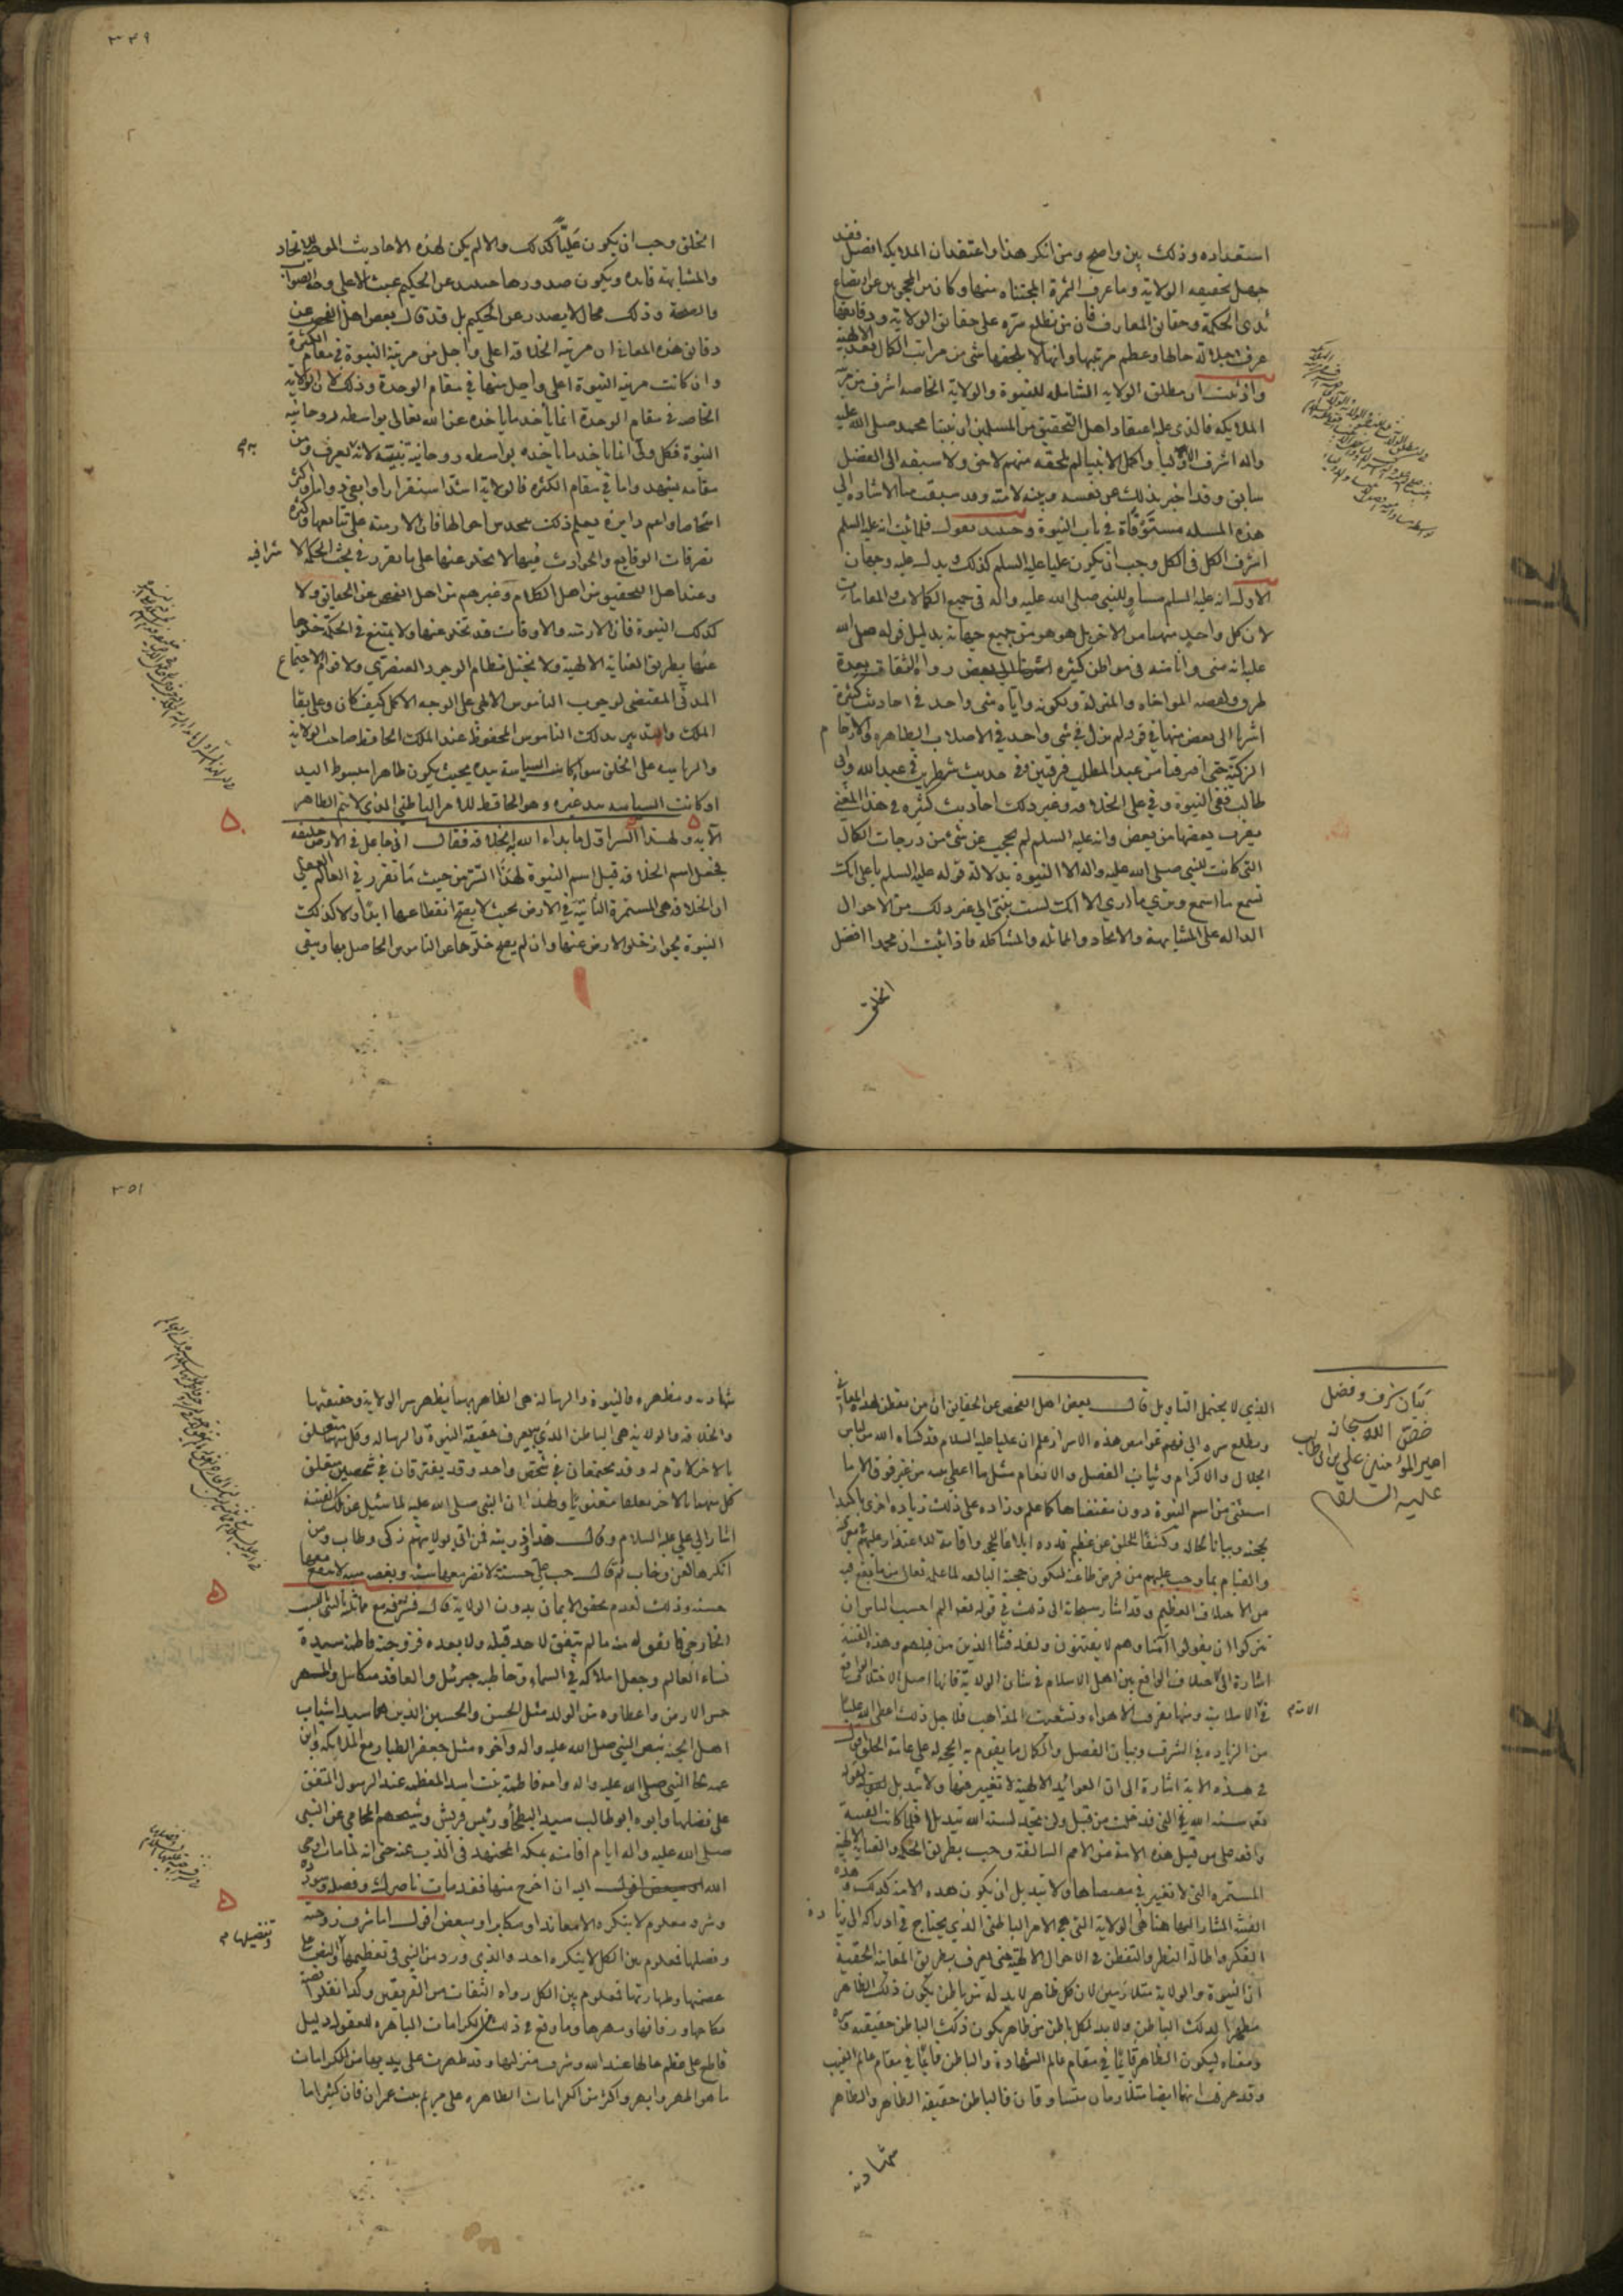 استعداده وذلك بين واضح ومن انكر هذا واعتقد ان الملايكه افضل فقد
جهل بحقيقه الولاية وما عرف الثمرة المجتناه منها وكان من المحجوبين عن ارتضاع
ثدى الحكمة وحقائق المعارف فان من تطلع سره على حقايق الولايه ودقايقها
عرف جلالة حالها وعظم مرتبتها وانها لا يلحقها شى من مراتب الكمال بعد الالهية
واذا ثبت ان مطلق الولايه الشامله للنبوة والولاية الخاصه اشرف من
الملايكه فالذى عليه اعتقاد اهل التحقيق من المسلمين ان نبينا محمد صلى الله عليه
واله اشرف الاوليا واكمل الانبيا لم يلحقه منهم لاحق ولا سبقه الى الفضل
سابق وقد اخبر بذلك عن نفسه وبينه لامته وقد سبقت منا الاشاره الى
هذه المسله مستوفاة في باب النبوة وحينئذ نقول فلما ثبت انه عليه السلم
اشرف الكل فى الكل وجب ان يكون عليا عليه السلم كذلك يدل عليه وجهان
الاول انه عليه السلم مساو للنبي صلى الله عليه واله فى جميع الكمالات والمقامات
لان كل واحد منهما من الاخر بل هو هو من جميع جهاته بدليل قوله صلى الله
عليه انه منى وانا منه فى مواطن كثيره اشرنا الى بعض رواه الثقات بعدة
طرق ولقصه المواخاه والمنزلة ولكونه واياه شى واحد فى احاديث كثيرة
اشرنا الى بعض منها في قوله لم نزل في شى واحد فى الاصلاب الطاهره والارحام
الزكية حتى افترقنا من عبد المطلب فرقتين وفى حديث شطرين في عبد الله وابى
طالب ففى النبوة وفي على الخلافه وغير ذلك احاديث كثيره في هذا المعنى
يعرف بعضها من بعض وانه عليه السلم لم يحجب عن شئ من درجات الكمال
التى كانت للنبي صلى الله عليه واله الا النبوة بدلالة قوله عليه السلم يا على انك
تسمع ما اسمع وترى ما ارى الا انك لست بنبى الى غير ذلك من الاحوال
الداله على المشابهة والاتحاد والماثله والمشاكله فاذا ثبت ان محمدا افضل
الخلق
٣٤٩
الخلق وجب ان يكون عليّاً كذلك والا لم يكن لهذه الاحاديث الموجبه للاتحاد
والمشابهة فايده ويكون صدورها حينئذ عن الحكيم عبث لا على وجه الصواب
والصحة وذلك محال لا يصدر عن الحكيم بل قد قال بعض اهل الفحص عن
دقائق هذه المعانى ان مرتبه الخلافه اعلى واجل من مرتبة النبوة في مقام الكثرة
وان كانت مرتبه النبوة اعلى واجل منها في مقام الوحدة وذلك لان الولايه
الخاصه فى مقام الوحدة انما ياخذ ما ياخذه عن الله تعالى بواسطه روحانيه
النبوة فكل ولى انما ياخذ ما ياخذه بواسطه روحانية نبيّه لانه يعرف ومن
مقامه يشهد واما في مقام الكثره فالولاية اشد استقرارا وابقى دواما واكثر
اشخاصا واعم دايرة يعلم ذلك
تصرفات الوقايع والحوادث فيها لا يخلو عنها على ما تقرر في بحث الحكمة
وعند اهل التحقيق من اهل الكلام وغيرهم من اهل الفحص عن الحقايق ولا
كذلك النبوة فان الازمنه والاوقات قد تخلو عنها ولا يمتنع في الحكمة خلوها
عنها بطريق العناية الالهية ولا يختل نظام الوجود العنصري ولا قوام الاجتماع
المدنى المقتضى لوجوب الناموس الالهى على الوجه الاكمل كيف كان وعلى بقا
الملك والتدبير بذلك الناموس المحفوظ عند الملك الحافظ صاحب الولاية
والرياسه على الخلق سواء كانت السياسة بيده بحيث يكون ظاهرا مبسوط اليد
او كانت السياسه بيد غيره وهو الحافظ للامر الباطنى الذى لا يتم الظاهر
الا به ولهذا السر اول ما بداء الله بالخلافه فقال انى جاعل فى الارض خليفه
فجعل اسم الخلافه قبل اسم النبوة لهذا السر من حيث ما تقرر في العالم العقلي
ان الخلافه هى المستمرة الثابتة في الارض بحيث لا يصح انقطاعها ابدا ولا كذلك
النبوة لجواز خلو الارض عنها وان لم يصح خلوها عن الناموس الحاصل بها ويبقى
بيان شرف وفضل
خصّ الله سبحانه
امير المؤمنين على بن ابى طالب
عليه السلام
الذي لا يحتمل التاويل قال بعض اهل الفحص عن الحقايق ان من تفطن لهذه المعانى
وتطلع سره الى فهم غوامض هذه الاسرار علم ان عليا عليه السلام قد كساه الله من لباس
الجلال والاكرام وثياب الفضل والانعام مثل ما اعطى نبيه من غير فرق الا ما
استثنى من اسم النبوة دون مقتضاها كما علم وزاده على ذلك زياده اخرى تاكيدا
لحجته وبيانا لحاله وكشفا للخلق عن عظيم قدره ابلاغا للحجه واقامة للاعتذار عليهم
والقيام بما وجب عليهم من فرض طاعته لتكون حجته البالغه لما علم تعالى من ما يقع فيه
من الاختلاف العظيم وقد اشار سبحانه الى ذلك في قوله تعالى الم احسب الناس ان
يتركوا ان يقولوا آمنا وهم لا يفتنون ولقد فتنا الذين من قبلهم وهذه الفتنة
اشارة الى الاختلاف الواقع بين اهل الاسلام فى شان الولاية فانها اصل الاختلاف الواقع
فى الاسلام ومنها تفرقت الاهواء وتشعبت المذاهب فلاجل ذلك اعطى الله عليا
من الزياده فى الشرف وبيان الفضل والكمال ما يقوم به الحجه له على عامة الخلق
في هذه الاية اشارة الى ان العوائد الالهية لا تغيير فيها ولا تبديل لقوله
تعالى سنة الله التى قد خلت من قبل ولن تجد لسنة الله تبديلا فلما كانت الفتنة
واقعه على من قبل هذه الامة من الامم السالفة وجب بطريق الحكمه والعناية الالهية
المستمره التى لا تغيير في مقتضاها ولا تبديل ان يكون هذه الامة كذلك وهذه
الفتنة المشار اليها هنا هى الولاية التى هى الامر الباطنى الذي يحتاج في ادراكه الى زيادة
الفكر واطالة النظر والتفطن في الاحوال الالهية حتى يعرف بطريق المعاينة الحقيقية
ان النبوة والولاية متلازمين لان كل ظاهر لابد له من باطن يكون ذلك الظاهر
مظهرا لذلك الباطن ولا بد لكل باطن من ظاهر يكون ذلك الباطن حقيقته وسره
ومعناه ليكون الظاهر قايما في مقام عالم الشهادة والباطن قايما في مقام عالم الغيب
وقد عرفت انهما ايضا متلازمان متساوقان فالباطن حقيقة الظاهر والظاهر
شهادته
٣٥١
شهادته ومظهره فالنبوة والرسالة هى الظاهر بهما يظهر سر الولاية وحقيقتها
والخلافه والولاية هى الباطن الذى بها يعرف حقيقة النبوة والرسالة وكل منهما متعلق
بالاخر لازم له وقد يجتمعان في شخص واحد وقد يفترقان في شخصين متعلق
كل منهما بالاخر تعلقا معنويا ولهذا ان النبى صلى الله عليه لما سئل عن تلك الفتنة
اشار الى على عليه السلام وقال هذا وذريته فمن اقر بولايتهم زكى وطاب ومن
انكرها لعن وخاب ثم قال حب على حسنة لا تضر معها سيئة وبغضه سيئه لا ينفع معها
حسنه وذلك لعدم تحقق الايمان بدون الولاية قال فشرفه مع مماثلته بالنبى النسب
الخارجى فانه قوله منه ما لم يتفق لاحد قبله ولا بعده فزوجته فاطمة سيدة
نساء العالم وجعل املاكه في السماء وخاطبه جبرئيل والعاقد ميكائيل والمهر
خمس الارض واعطاه من الولد مثل الحسن والحسين الذين هما سيدا شباب
اهل الجنة بنص النبى صلى الله عليه واله واخوه مثل جعفر الطيار مع الملايكه وابن
عمه محمد النبى صلى الله عليه واله وامه فاطمة بنت اسد المعظمه عند الرسول المتفق
على فضلها وابوه ابو طالب سيد البطحاء ورئيس قريش وشيخهم المحامى عن النبى
صلى الله عليه واله ايام اقامته بمكه المجتهد فى الذب عنه حتى انه لما مات اوحى
الله اليه ان اخرج منها فقد مات ناصرك وفضله وسودده
وشرفه معلوم لا ينكره الا معاند او مكابر او مبغض اقول اما شرف زوجته
وفضلها فمعلوم بين الكل لا ينكره احد والذي ورد من النبى فى تعظيمها والنص على
عصمتها وطهارتها فمعلوم بين الكل رواه الثقات من الفريقين وكذا نقلوا قصة
نكاحها وزفافها ومهرها وما وقع فى ذلك من الكرامات الباهره للعقول دليل
قاطع على عظم حالها عند الله وشرف منزلتها وقد ظهرت على يديها من الكرامات
ما هو اظهر وابهر واكثر من الكرامات الظاهره على مريم بنت عمران فان كثيرا ما